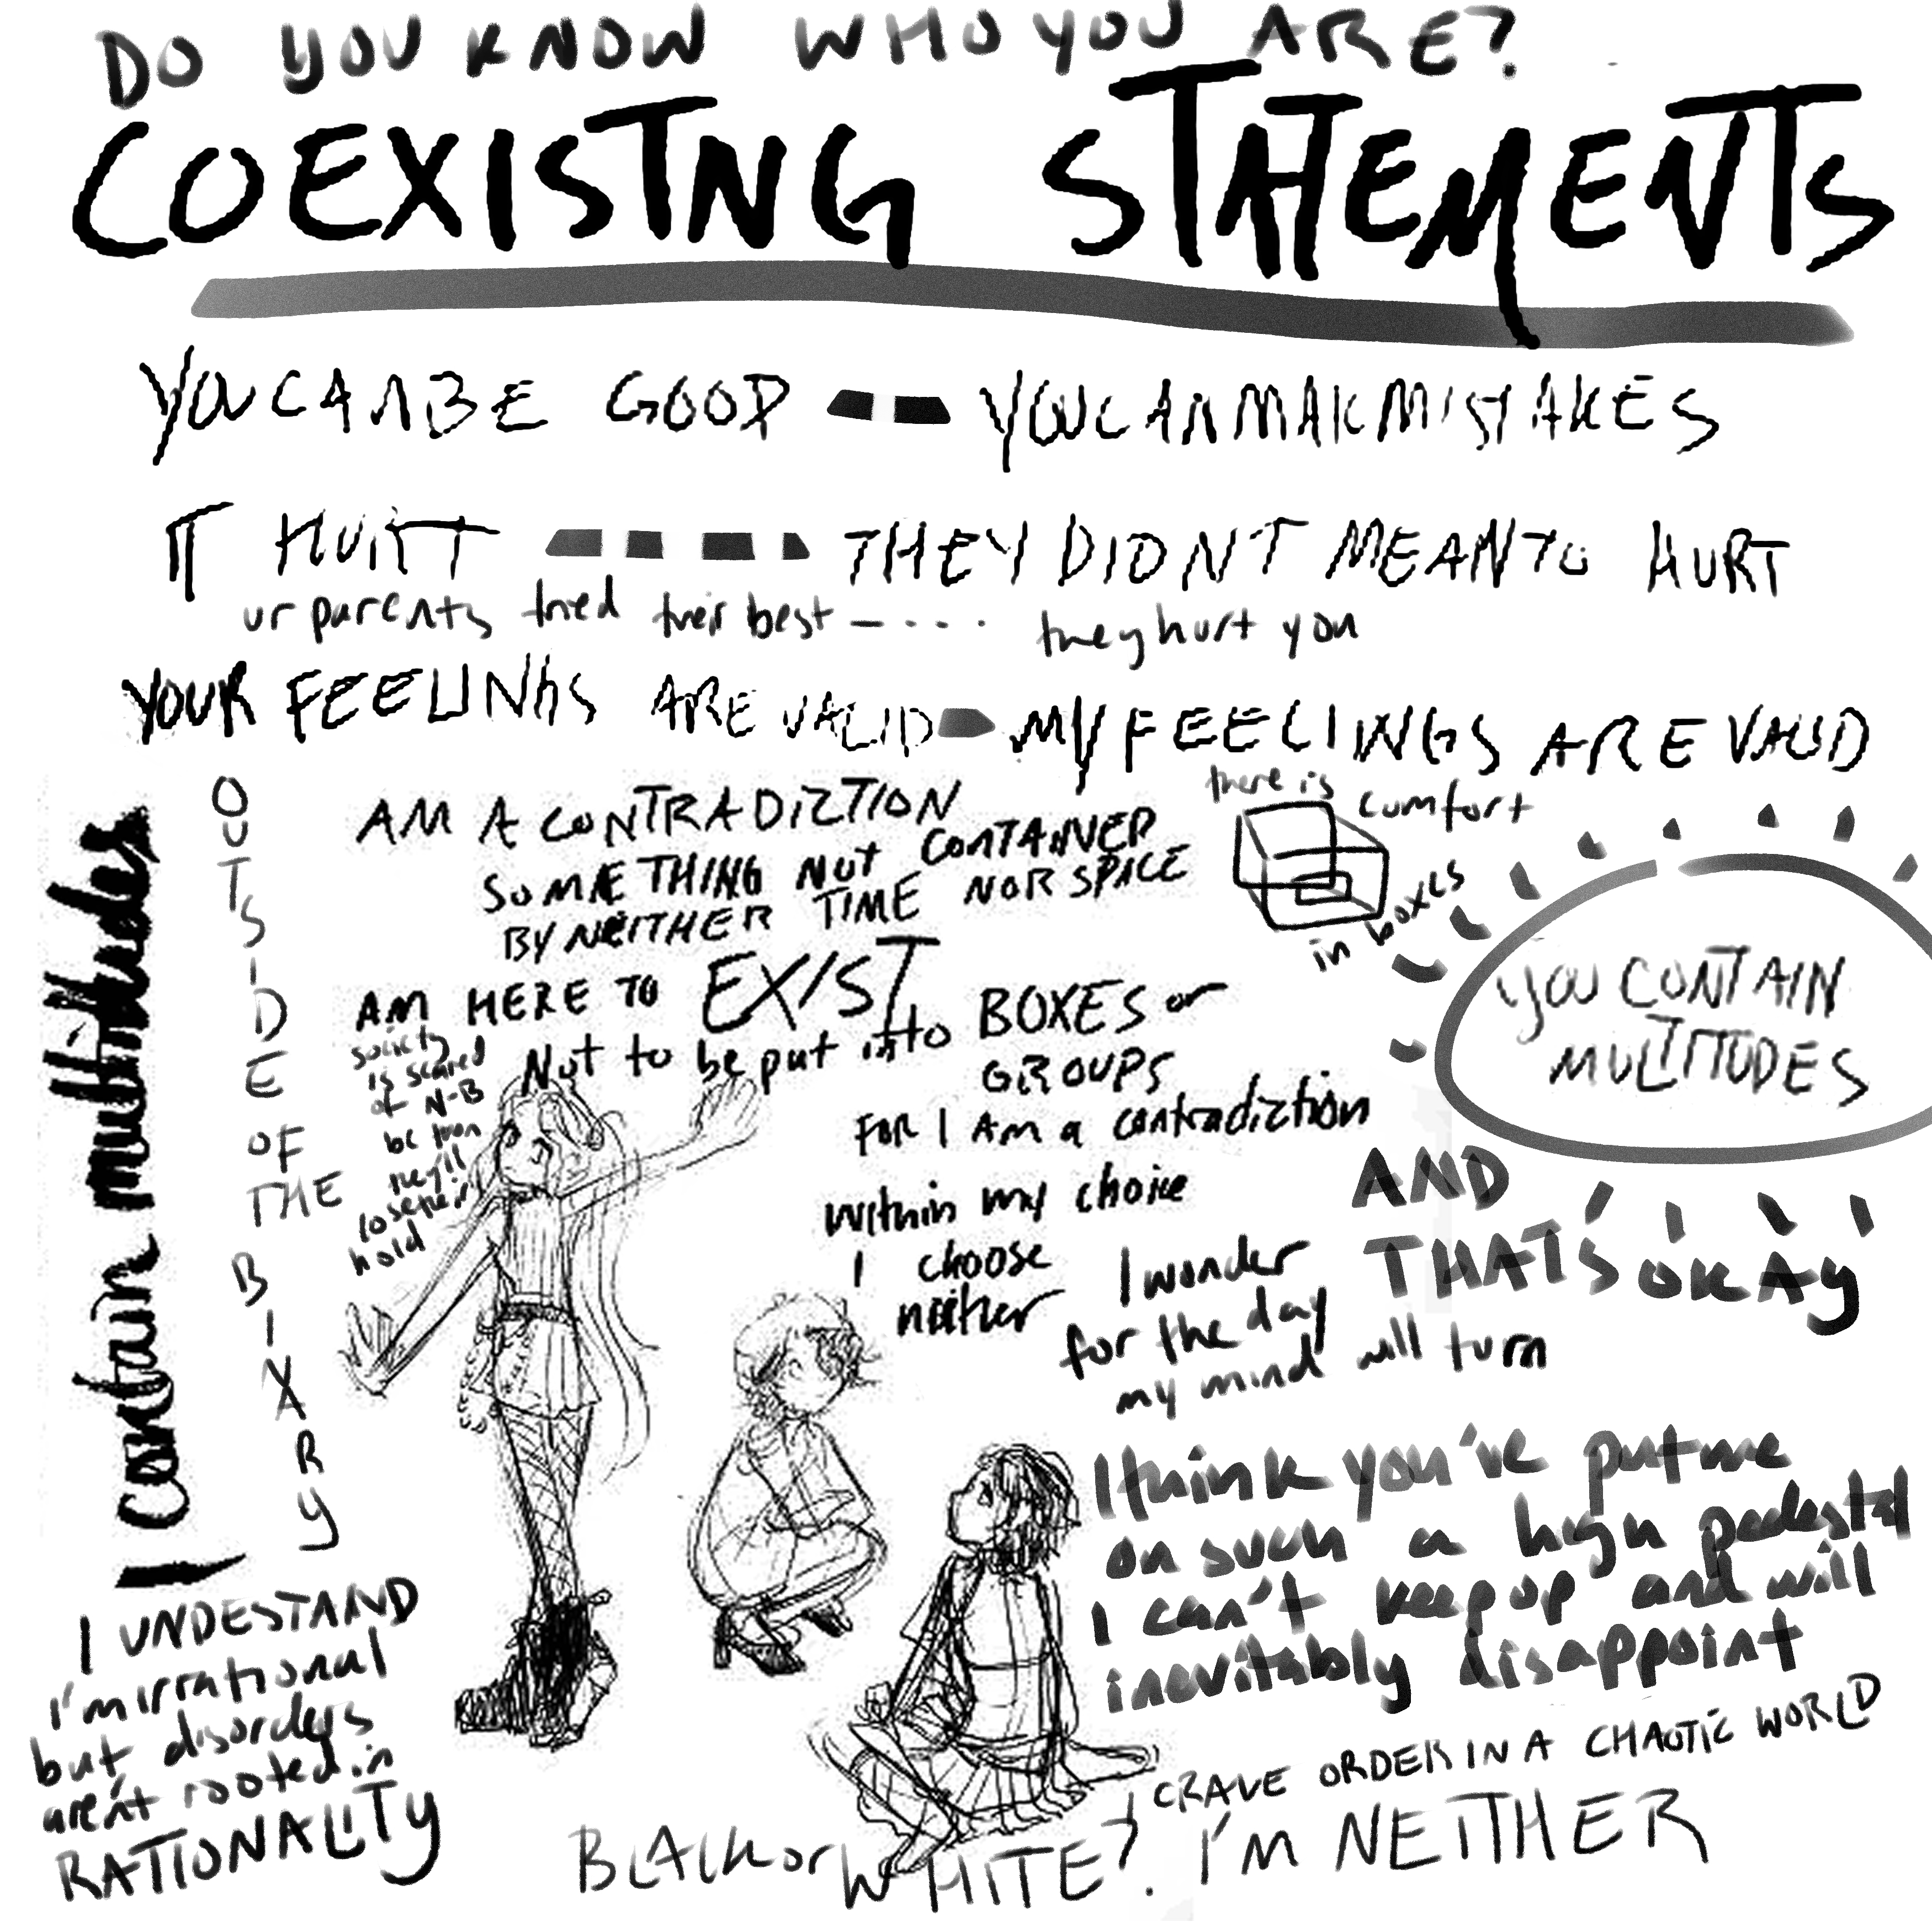 DO YOU KNOW WHO YOU ARE?
COEXISTNG STATEMENTS
YOU CAN BE GOOD -- YOU CAN MAK MISTAKES
IT HURT ---- THEY DIDN'T MEAN TO HURT
ur parents tried their best - .... they hurt you
YOUR FEELINGS ARE VALID - MY FEELINGS ARE VALID
I contain multitudes
OUTSIDE OF THE BINARY
AM A CONTRADICTION
SOMETHING NOT CONTAINED
BY NEITHER TIME NOR SPACE
there is comfort
in boxes
AM HERE TO EXIST
Not to be put into BOXES or
GROUPS
society
is scared
of N-B
hold
FOR I AM a contradiction
within my choice
I choose
neither
YOU CONTAIN
MULTITUDES
AND
THAT'S OKAY
I wonder
for the day
my mind will turn
I think you've put me
on such a high pedestal
I can't keep up and will
inevitably disappoint
I UNDESTAND
i'm irrational
but disorders
aren't rooted in
RATIONALITY
I CRAVE ORDER IN A CHAOTIC WORLD
BLACK or WHITE? I'M NEITHER